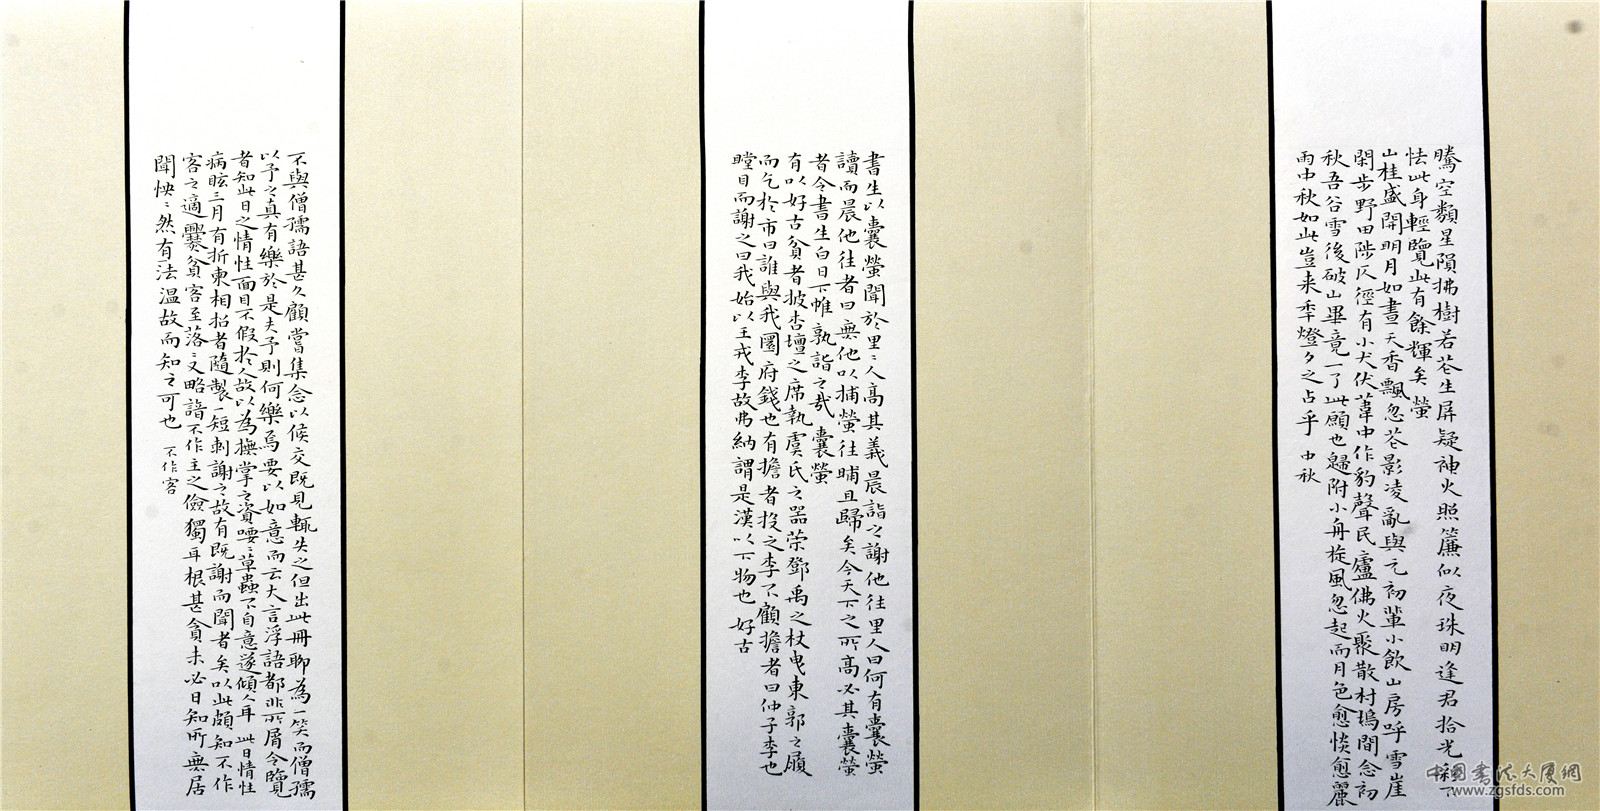 騰空類星隕拂樹若花生屏疑神火照簾似夜珠明逢君拾光彩不
怯此身輕覽此有餘輝矣 螢
山桂盛開明月如晝天香飄忽花影凌亂與元初輩小飲山房呼雪崖
閑步野田陟仄徑有小犬伏葦中作豹聲民廬佛火聚散村塢間念初
秋吾谷雪後破山畢竟一了此願也歸附小舟旋風忽起而月色愈惔愈麗
雨中秋如此豈来年燈夕之占乎 中秋
書生以囊螢聞於里﹦人高其義晨詣之謝他往里人曰何有囊螢
讀而晨他往者曰無他以捕螢往晡且歸矣今天下之所高必其囊螢
者令書生白日下帷孰詣之哉 囊螢
有以好古貧者披杏壇之席執虞氏之器荣鄧禹之杖曳東郭之履
而乞於市曰誰與我圜府錢也有擔者投之李不顧擔者曰仲子李也
瞠目而謝之曰我始以王戎李故弗納謂是漢以下物也 好古
不與僧孺語甚久顧嘗集念以候交既見輒失之但出此冊聊為一笑而僧孺
以予之真有樂於是夫予則何樂焉要以如意而云大言浮語都非所屑令覽
者知此日之情性面目不假於人故以為撫掌之資嘤﹦草蟲不自意遂傾人耳此日情性
病眩三月有折柬相招者隨製一短刺謝之故有既謝而聞者矣以此頗知不作
客之適爨貧客至落﹦又略諳不作主之儉獨耳根甚貪未必日知所無居
聞怏﹦然有法溫故而知之可也 不作客
中國書法大厦網
www.zgsfds.com